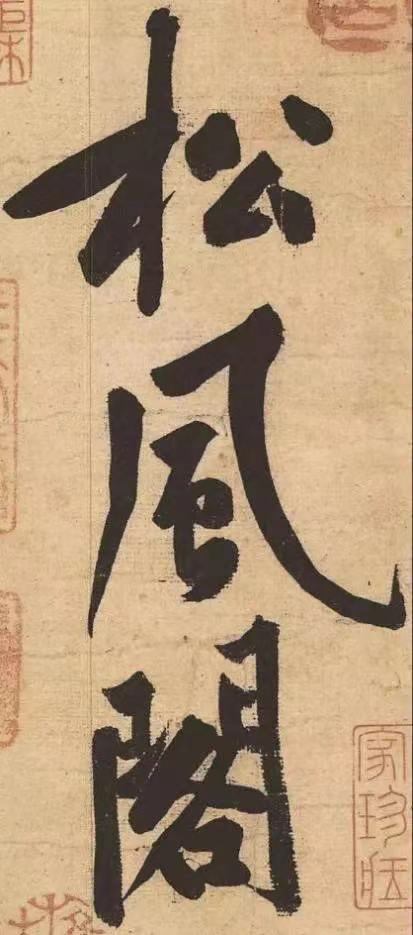 松風閣
家珍藏